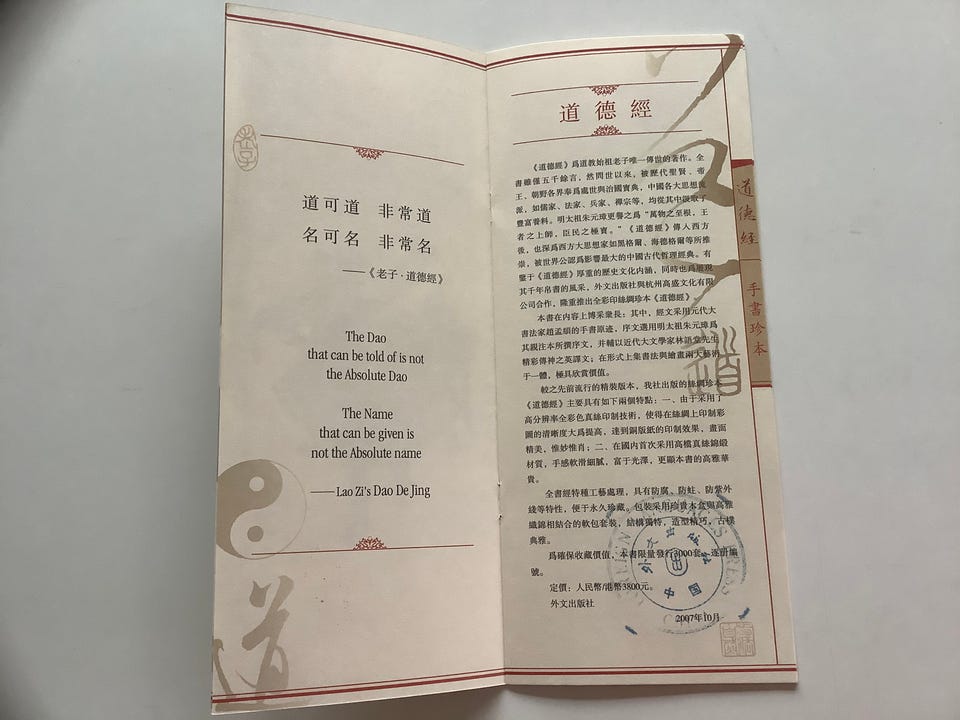 道可道 非常道
名可名 非常名
——《老子·道德經》
The Dao
that can be told of is not
the Absolute Dao
The Name
that can be given is
not the Absolute name
——Lao Zi's Dao De Jing
道
道德經
《道德經》爲道教始祖老子唯一傳世的著作。全
書雖僅五千餘言，然問世以來，被歷代聖賢、帝
王、朝野各界奉爲處世與治國寶典，中國各大思想流
派，如儒家、法家、兵家、禪宗等，均從其中汲取了
豐富養料。明太祖朱元璋更譽之爲“萬物之至根，王
者之上師，臣民之極寶。”《道德經》傳入西方
後，也深爲西方大思想家如黑格爾、海德格爾等所推
崇，被世界公認爲影響最大的中國古代哲理經典。有
鑒于《道德經》厚重的歷史文化内涵，同時也爲展現
其千年帛書的風采，外文出版社與杭州高盛文化有限
公司合作，隆重推出全彩印絲綢珍本《道德經》。
本書在内容上博采衆長：其中，經文采用元代大
書法家趙孟頫的手書原迹，序文選用明太祖朱元璋爲
其親注本所撰序文，并輔以近代大文學家林語堂先生
精彩傳神之英譯文；在形式上集書法與繪畫兩大藝術
于一體，極具欣賞價值。
較之先前流行的精裝版本，我社出版的絲綢珍本
《道德經》主要具有如下兩個特點：一、由于采用了
高分辨率全彩色真絲印制技術，使得在絲綢上印制彩
圖的清晰度大爲提高，達到銅版紙的印制效果，畫面
精美，惟妙惟肖；二、在國内首次采用高檔真絲錦緞
材質，手感軟滑細膩，富于光澤，更顯本書的高雅華
貴。
全書經特種工藝處理，具有防腐、防蛀、防紫外
綫等特性，便于永久珍藏。包裝采用珍貴木盒與高雅
織錦相結合的軟包套裝，結構獨特，造型精巧，古樸
典雅。
爲確保收藏價值，本書限量發行3000套，逐册編
號。
定價：人民幣/港幣3800元。
外文出版社
2007年10月
道德经
手書珍本
外文出版社
中国